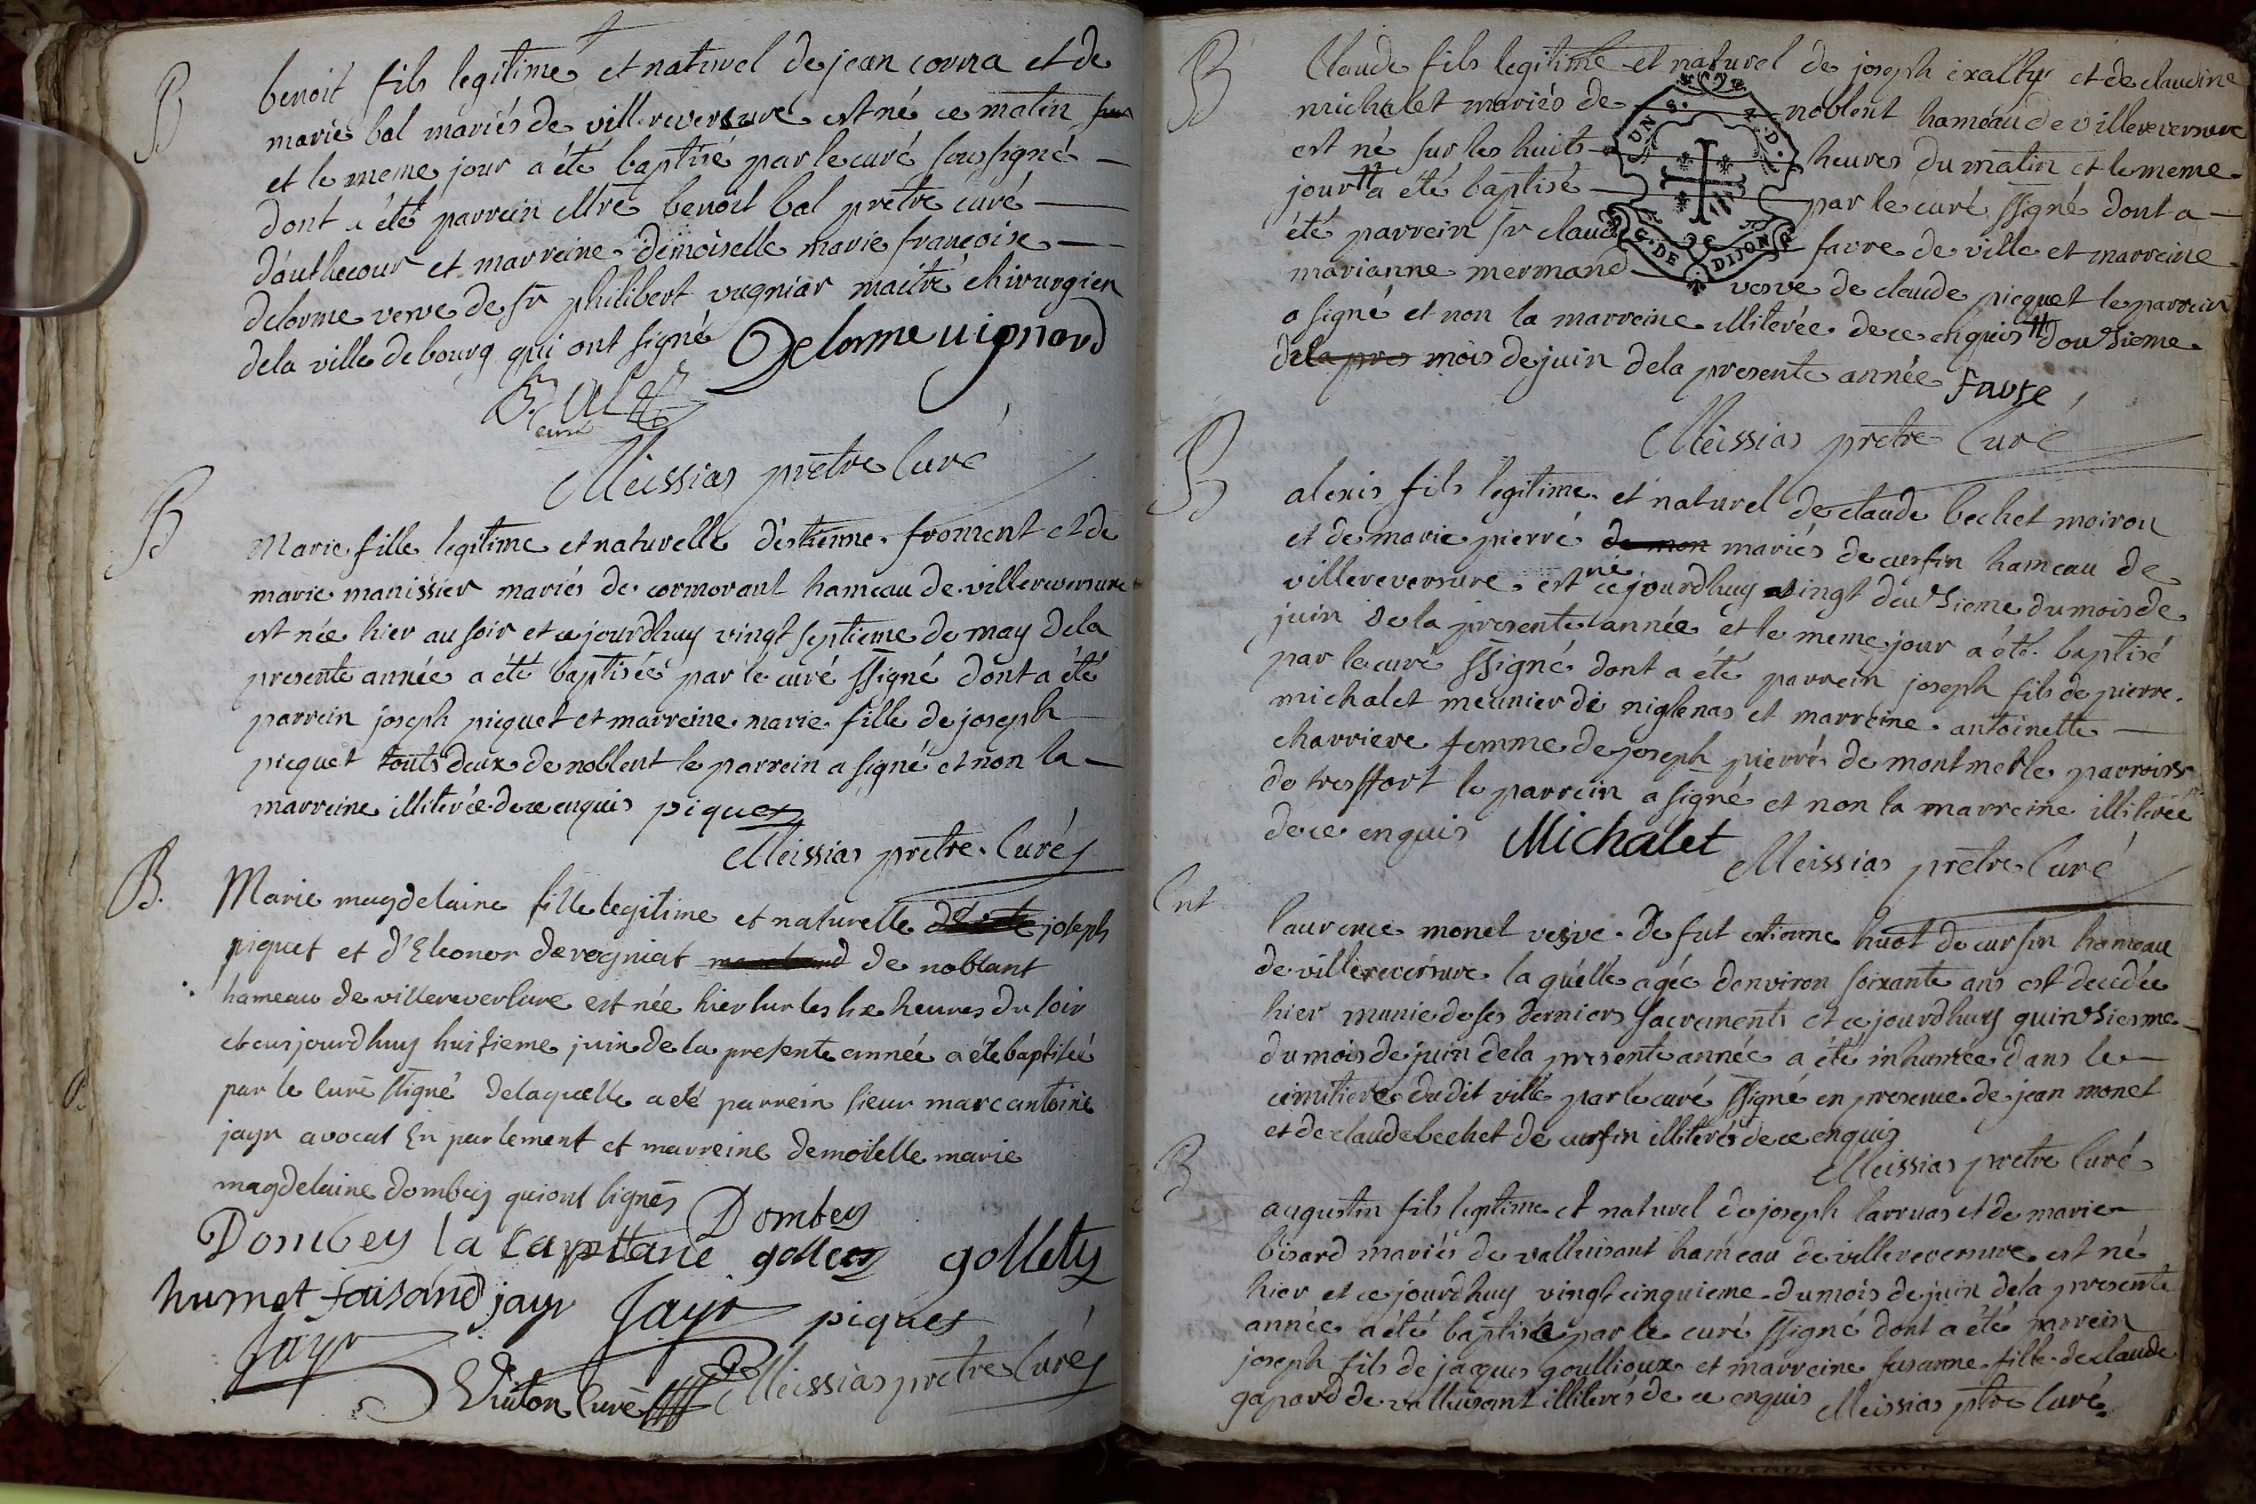 B benoit fils legitime et naturel de jean corra et de
marie bal mariés de villereversure est né ce matin
et le meme jour a été baptisé par le curé soussigné
dont a été parrein Mre benoit bal pretre curé
d'authecour et marreine demoiselle marie françoise
delorme veuve de sr philibert vugniar maitre chirurgien
dela ville de bourg qui ont signé Delorme uignard
B. Bal
curé
Meissias pretre Curé
B Marie fille legitime et naturelle d'etienne froment et de
marie manissier mariés de cormorant hameau de villereversure
est née hier au soir et cejourdhuy vingt septieme de may dela
presente année a été baptisée par le curé ssigné dont a été
parrein joseph picquet et marreine marie fille de joseph
picquet touts deux de noblent le parrein a signé et non la
marreine illiterée de ce enquis piquet
Meissias pretre Curé
B. Marie magdelaine fille legitime et naturelle de joseph
piquet et d'Eleonor derogniat de noblant
hameau de villereversure est née hier sur les six heures du soir
et cejourdhuy huitieme juin de la presente année a été baptisée
par le Curé ssigné delaquelle a eté parrein sieur marc antoine
jayr avocat En parlement et marreine demoiselle marie
magdelaine dombey qui ont signés
Dombey
Dombey la capitane gollety gollety
humet faisand jayr Jayr piquet
Jayr
Piuton Curé Meissias pretre Curé
B Claude fils legitime et naturel de joseph exally et de claudine
michalet mariés de noblent hameau de villereversure
est né sur les huits heures du matin et le meme
jour # a été baptisé par le curé ssigné dont a
été parrein sr claude favre de ville et marreine
marianne mermand veuve de claude picquet le parrein
a signé et non la marreine illiterée de ce enquis # dousieme
dela pres mois de juin dela presente année Favre
Meissias pretre Curé
B alexis fils legitime et naturel de claude bechet moirou
et de marie pierre de mon mariés de cursin hameau de
villereversure est né cejourdhuy vingt deusieme du mois de
juin de la presente année et le meme jour a été baptisé
par le curé ssigné dont a été parrein joseph fils de pierre
michalet meunier de niglenas et marreine antoinette
charriere femme de joseph pierre de montmerle parroisse
de tresffort le parrein a signé et non la marreine illiterée
de ce enquis Michalet Meissias pretre Curé
Ent laurence monet veuve de fut etienne huot de cursin hameau
de villereversure la quelle agée d'environ soixante ans est decedée
hier munie de ses derniers sacrements et cejourdhuy quinsiesme
du mois de juin dela presente année a été inhumée dans le
cimitiere du dit ville par le curé ssigné en presence de jean monet
et de claude bechet de cursin illiterés de ce enquis
Meissias pretre Curé
B augustin fils legitime et naturel de joseph larruas et de marie
bisard mariés de valluisant hameau de villereversure est né
hier et cejourdhuy vingt cinquieme du mois de juin dela presente
année a été baptisé par le curé ssigné dont a été parrein
joseph fils de jacques goullioux et marreine susanne fille de claude
gapard de valluisant illiterés de ce enquis Meissias ptre Curé
G. DE DIJON